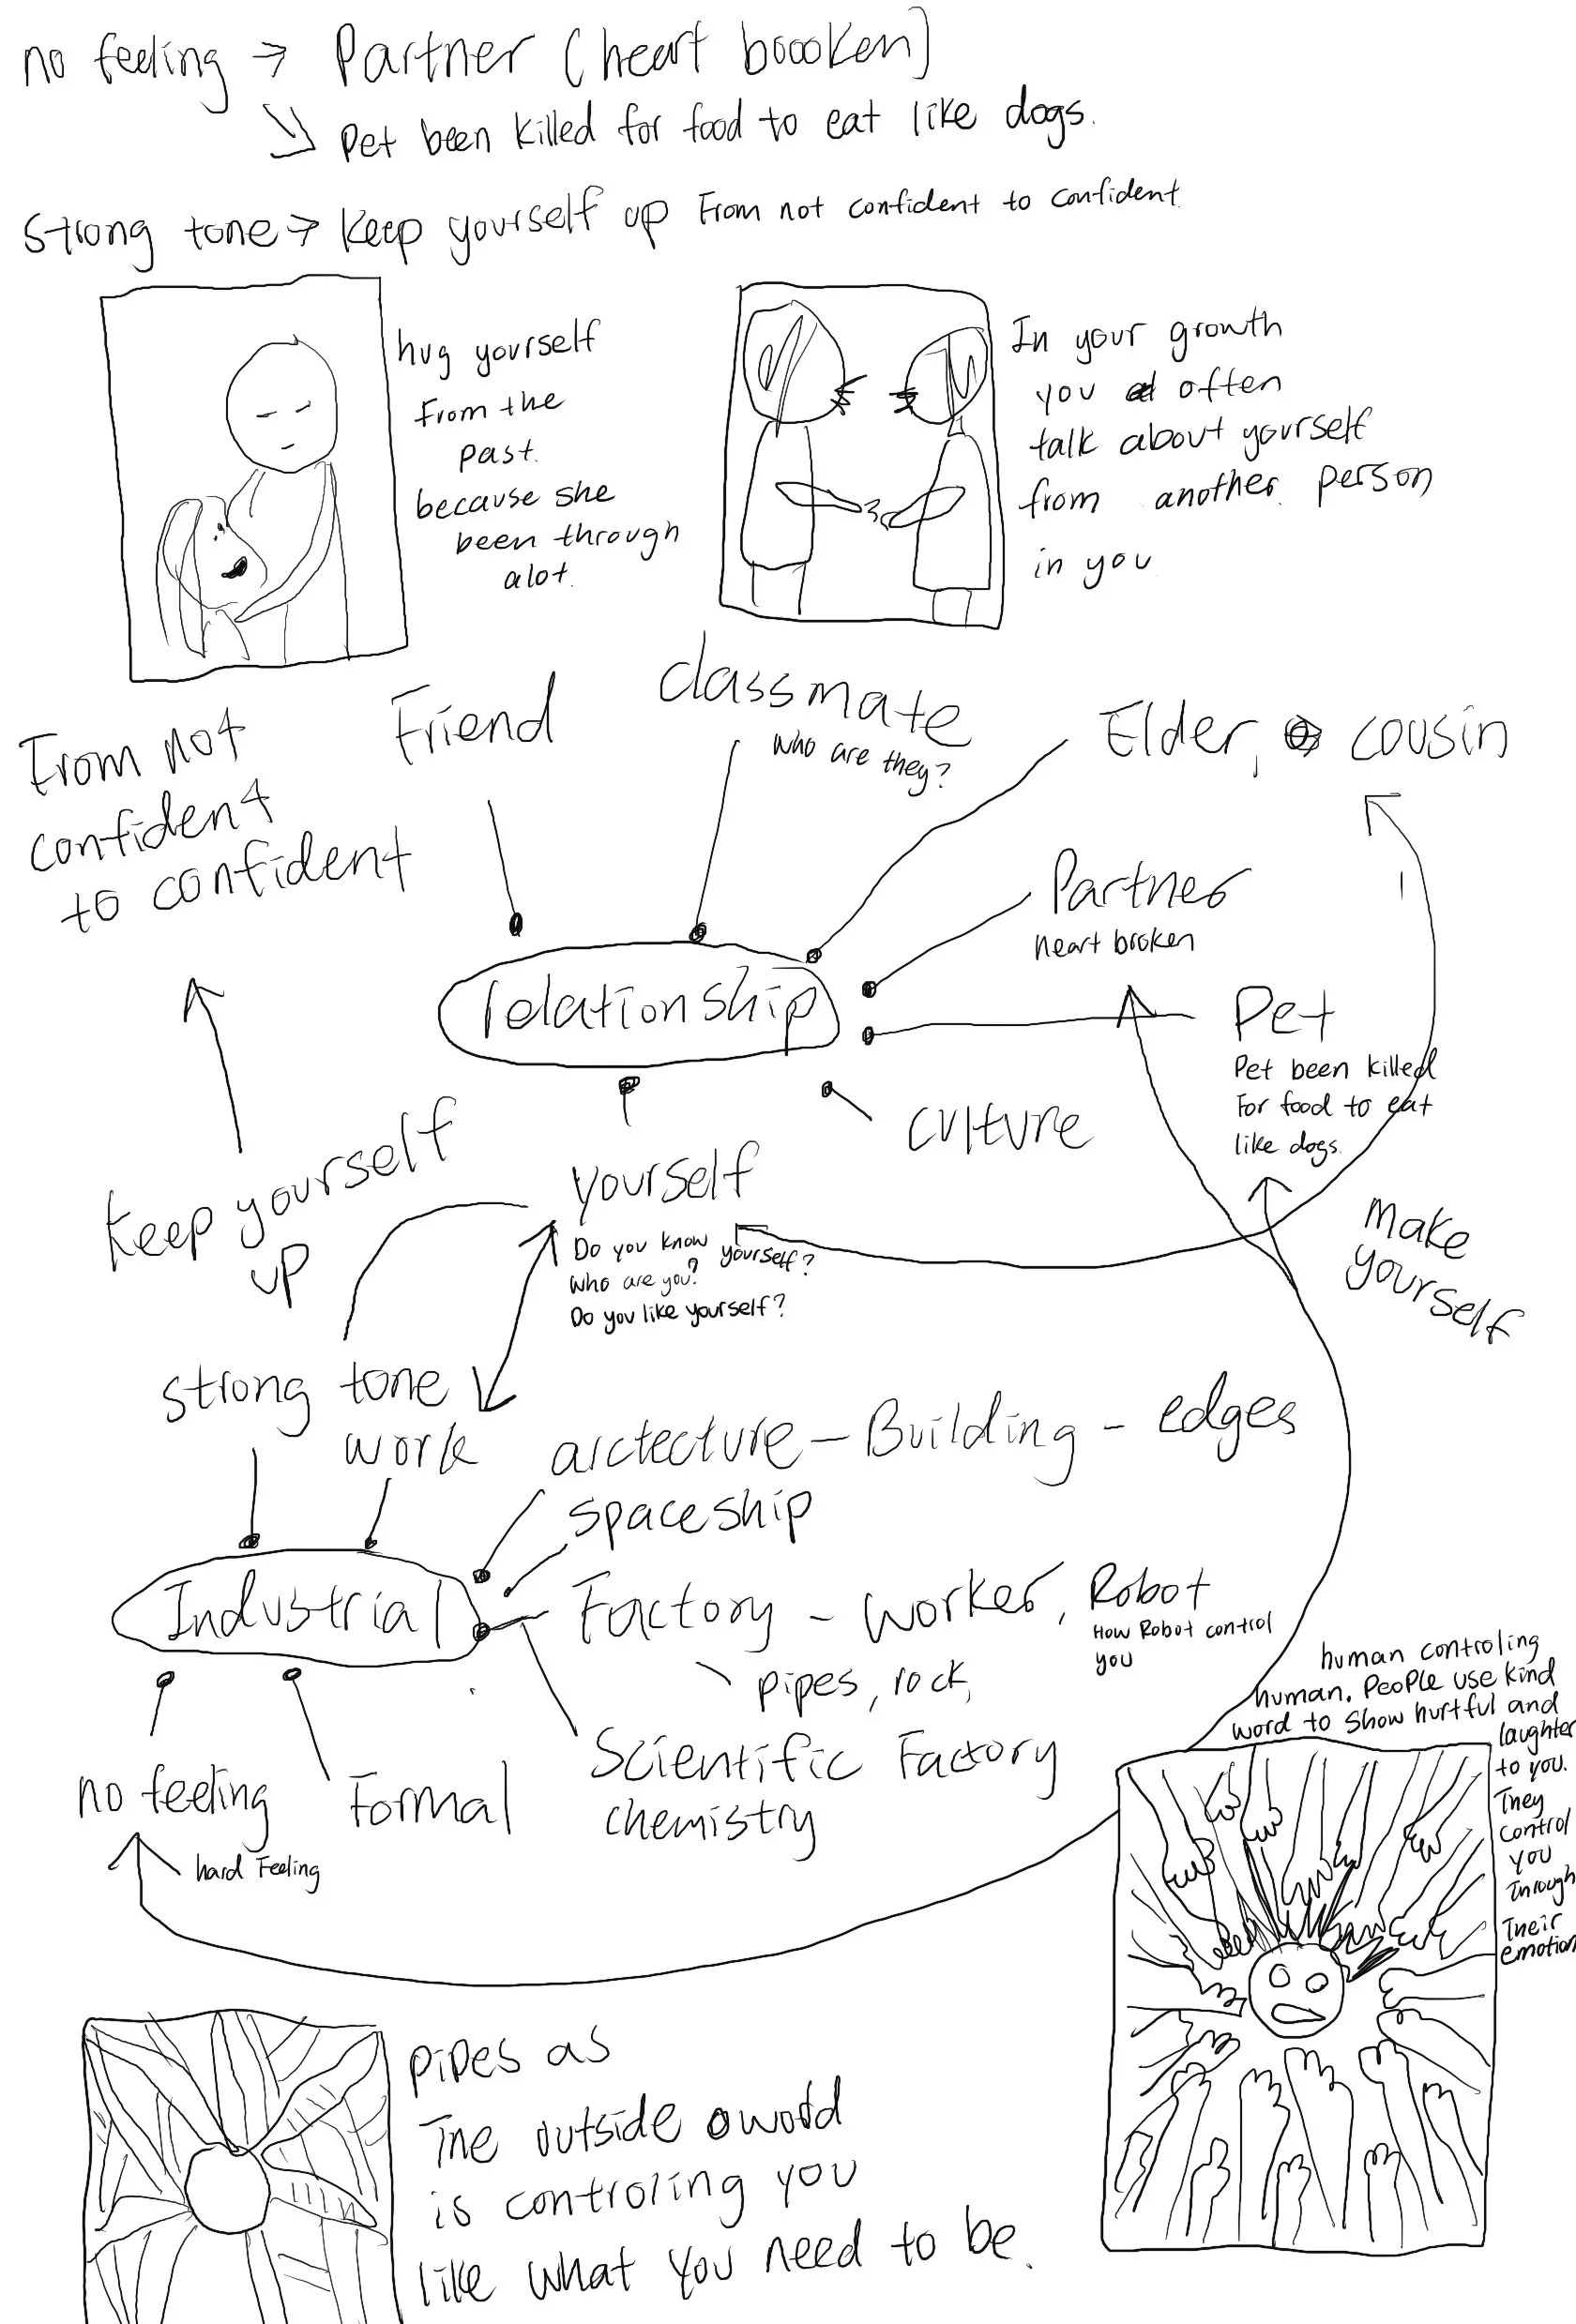 no feeling → Partner (heart boooken)
↘ Pet been killed for food to eat like dogs.
strong tone → Keep yourself up From not confident to confident
hug yourself
from the
past.
because she
been through
alot.
In your growth
you often
talk about yourself
from another person
in you
From not
confident
to confident
Friend
classmate
who are they?
Elder, cousin
Partner
heart broken
relationship
Pet
Pet been killed
For food to eat
like dogs.
culture
Keep yourself
up
yourself
Do you know yourself?
who are you?
Do you like yourself?
make
yourself
strong tone
work
arctecture - Building - edges
spaceship
Industrial
Factory - worker, Robot
How Robot control
you
pipes, rock,
Scientific Factory
chemistry
no feeling
hard Feeling
Formal
human controling
human. People use kind
word to show hurtful and
laughter
to you.
They
control
you
through
Their
emotion
pipes as
The outside world
is controling you
like what you need to be.